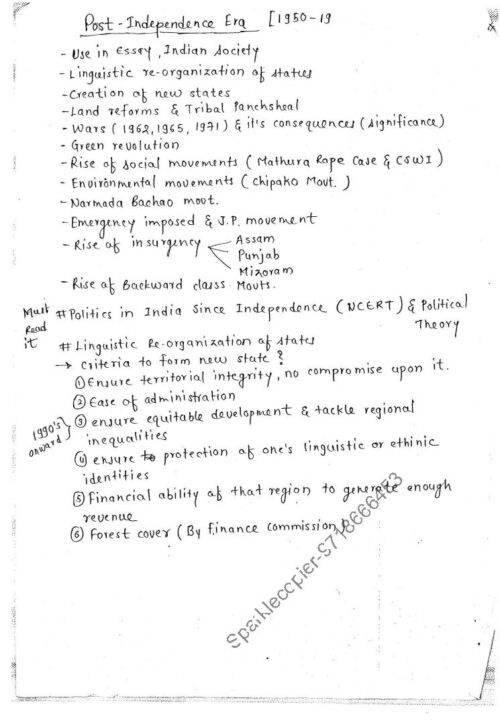 Post-Independence Era [1950-19
- Use in Essay, Indian Society
- Linguistic re-organization of states
- Creation of new states
- Land reforms & Tribal Panchsheal
- Wars (1962, 1965, 1971) & it's consequences (significance)
- Green revolution
- Rise of social movements (Mathura Rape Case & CSWI)
- Environmental movements (Chipako Movt.)
- Narmada Bachao movt.
- Emergency imposed & J.P. movement
- Rise of insurgency
Assam
Punjab
Mizoram
- Rise of Backward classs Movts.
Must Read it
# Politics in India Since Independence (NCERT) & Political Theory
# Linguistic Re-organization of states
→ Criteria to form new state?
① Ensure territorial integrity, no compromise upon it.
② Ease of administration
1990's onward
③ ensure equitable development & tackle regional
inequalities
④ ensure to protection of one's linguistic or ethinic
identities
⑤ Financial ability of that region to generate enough
revenue
⑥ Forest cover (By finance commission)